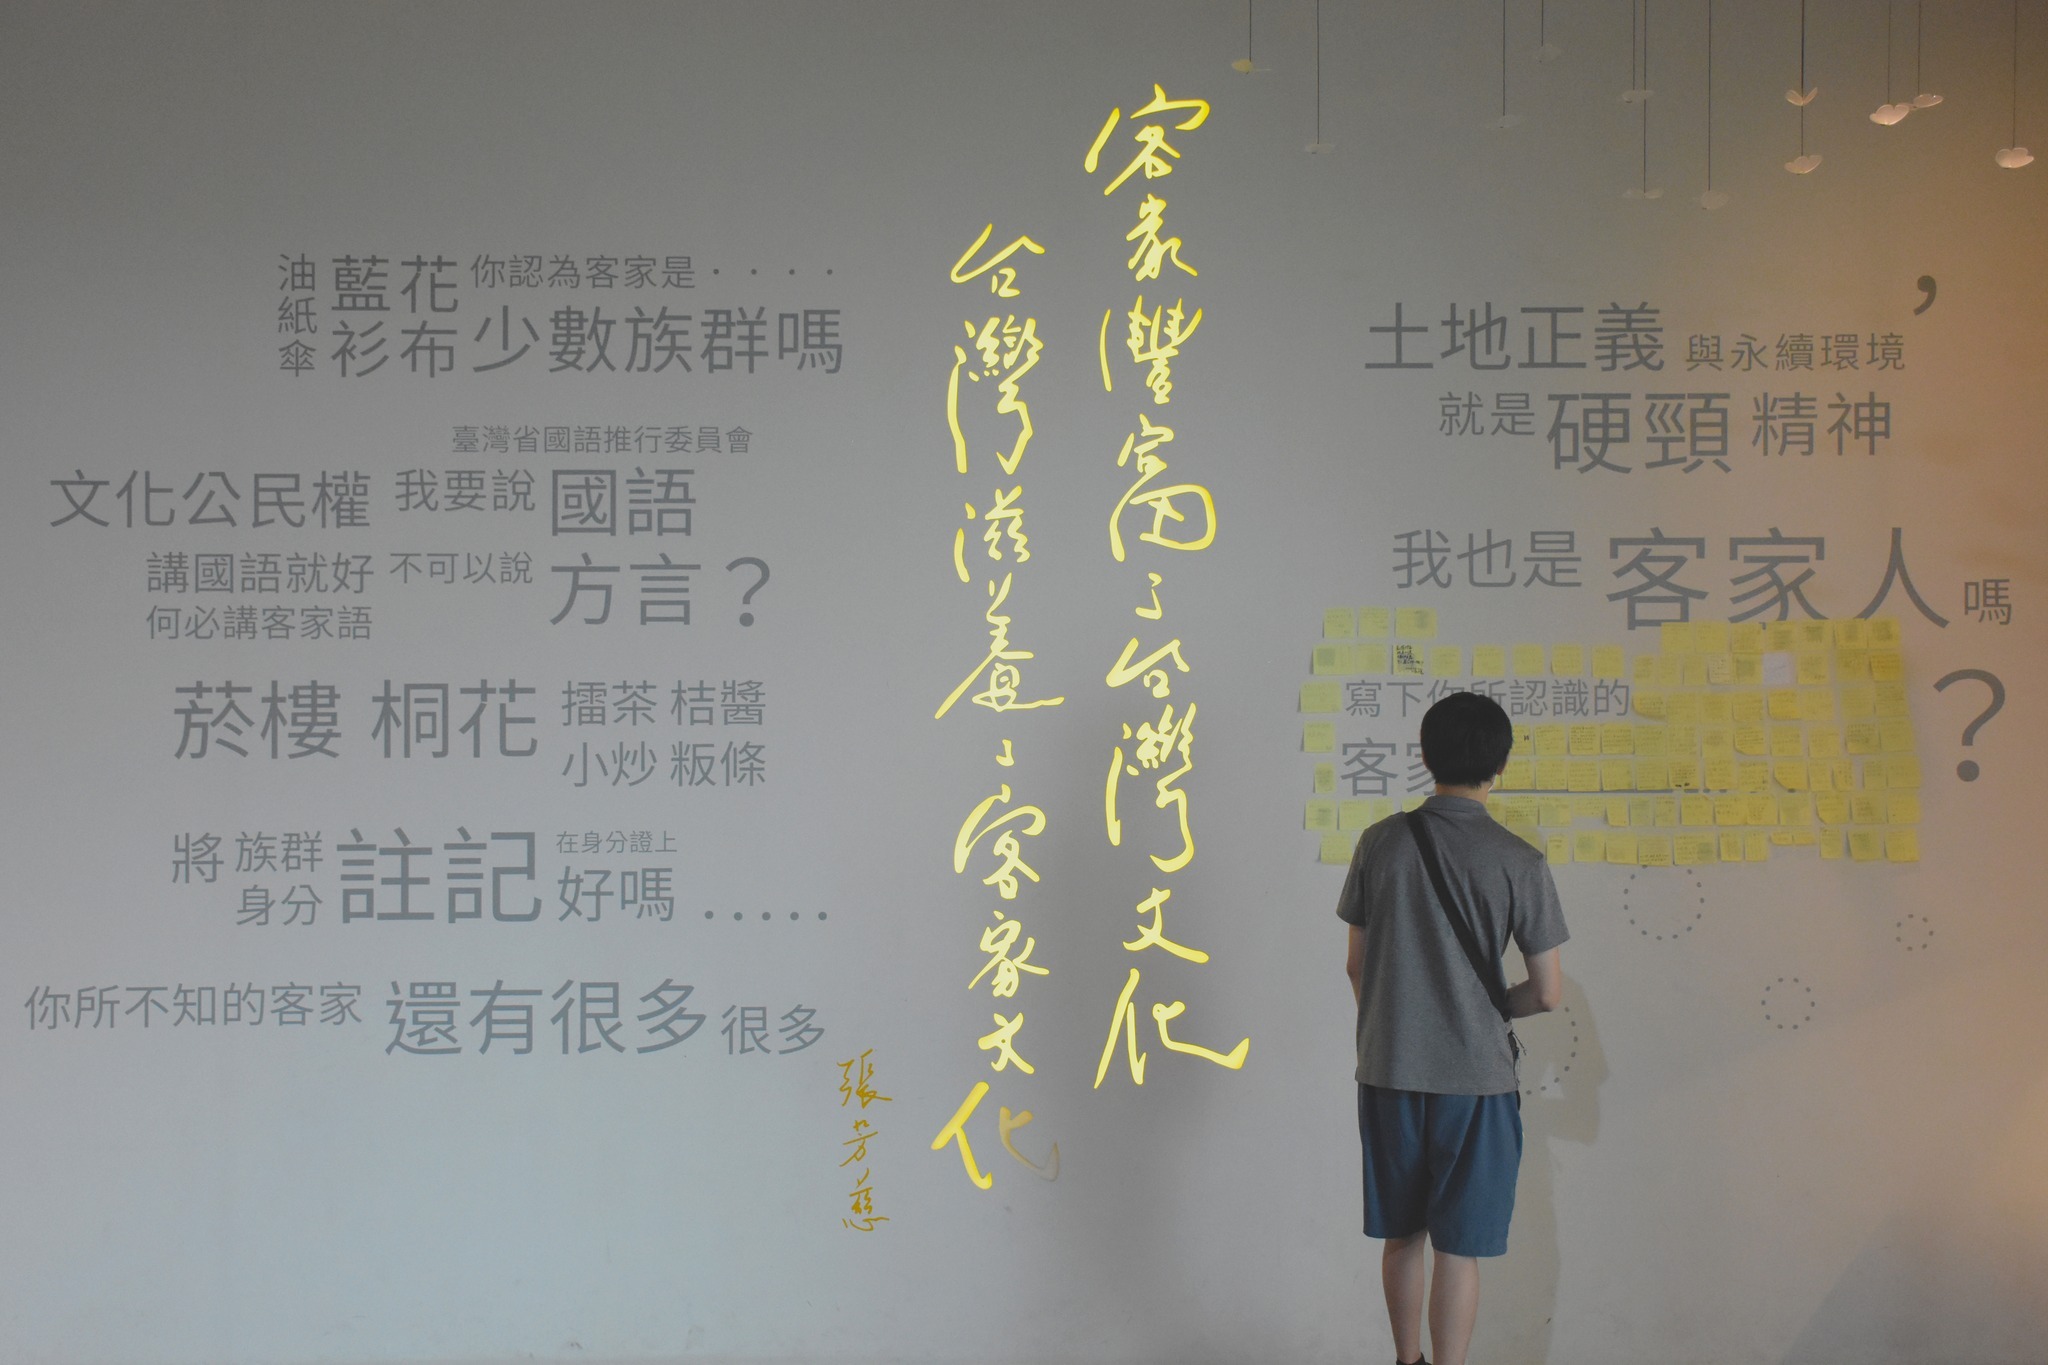 油紙傘
藍衫
花布
你認為客家是····
少數族群嗎
臺灣省國語推行委員會
文化公民權
我要說
國語
講國語就好
不可以說
方言？
何必講客家語
菸樓
桐花
擂茶
桔醬
小炒
粄條
將
族群
身分
註記
在身分證上
好嗎
.....
你所不知的客家
還有很多
很多
客家豐富了台灣文化
台灣滋養了客家文化
張芳慈
土地正義
與永續環境，
就是
硬頸
精神
我也是
客家人
嗎
？
寫下你所認識的
客家